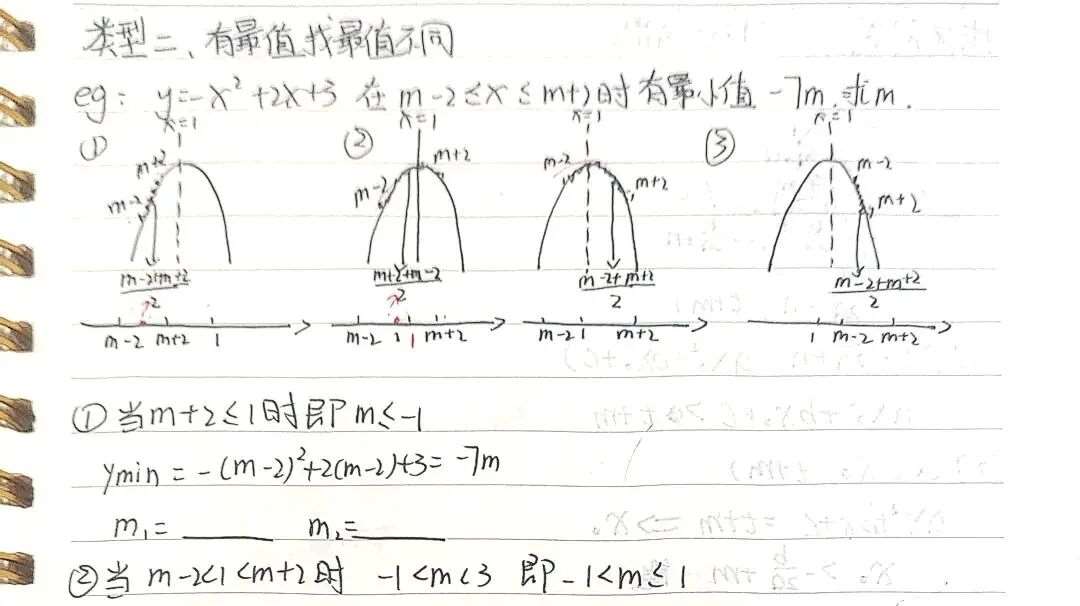 类型二、有最值,我最值不同
eg: y=-x²+2x+3 在 m-2≤x≤m+2时有最小值-7m,求m.
① x=1 m+2 m-2
② x=1 m+2 m-2
x=1 m-2 m+2
③ x=1 m-2 m+2
(m-2+m+2)/2
(m+2+m-2)/2
(m-2+m+2)/2
(m-2+m+2)/2
m-2 m+2 1
m-2 1 m+2
m-2 1 m+2
1 m-2 m+2
①当m+2≤1时即m≤-1
ymin=-(m-2)²+2(m-2)+3=-7m
m₁=______ m₂=______
②当 m-2<1<m+2时 -1<m<3 即-1<m≤1